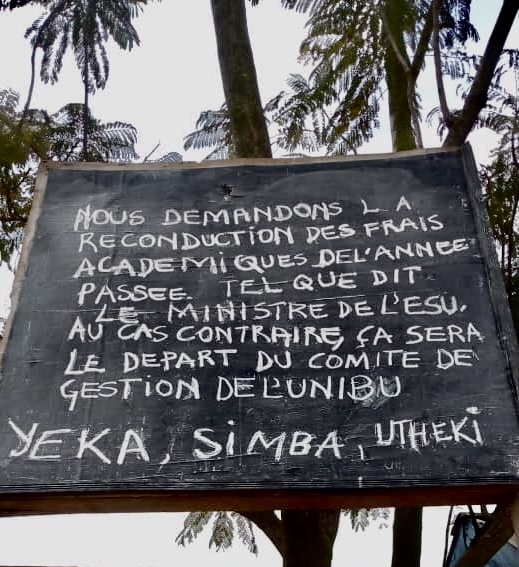 NOUS DEMANDONS LA
RECONDUCTION DES FRAIS
ACADEMIQUES DE L'ANNEE
PASSEE. TEL QUE DIT
LE MINISTRE DE L'ESU.
AU CAS CONTRAIRE, ÇA SERA
LE DEPART DU COMITE DE
GESTION DE L'UNIBU
YEKA, SiMBA, UTHEKi